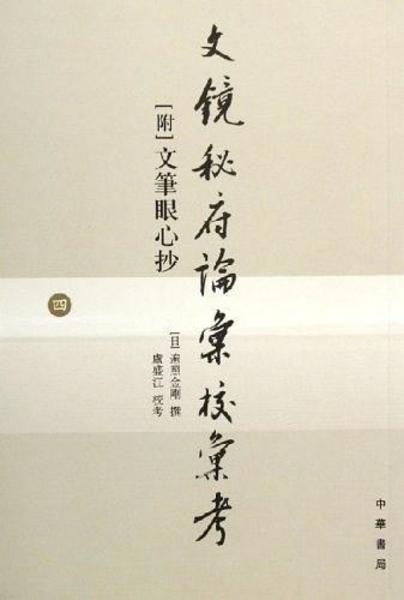 文鏡秘府論彙校彙考
[附]文筆眼心抄
四
[日]遍照金剛 撰
盧盛江 校考
中華書局